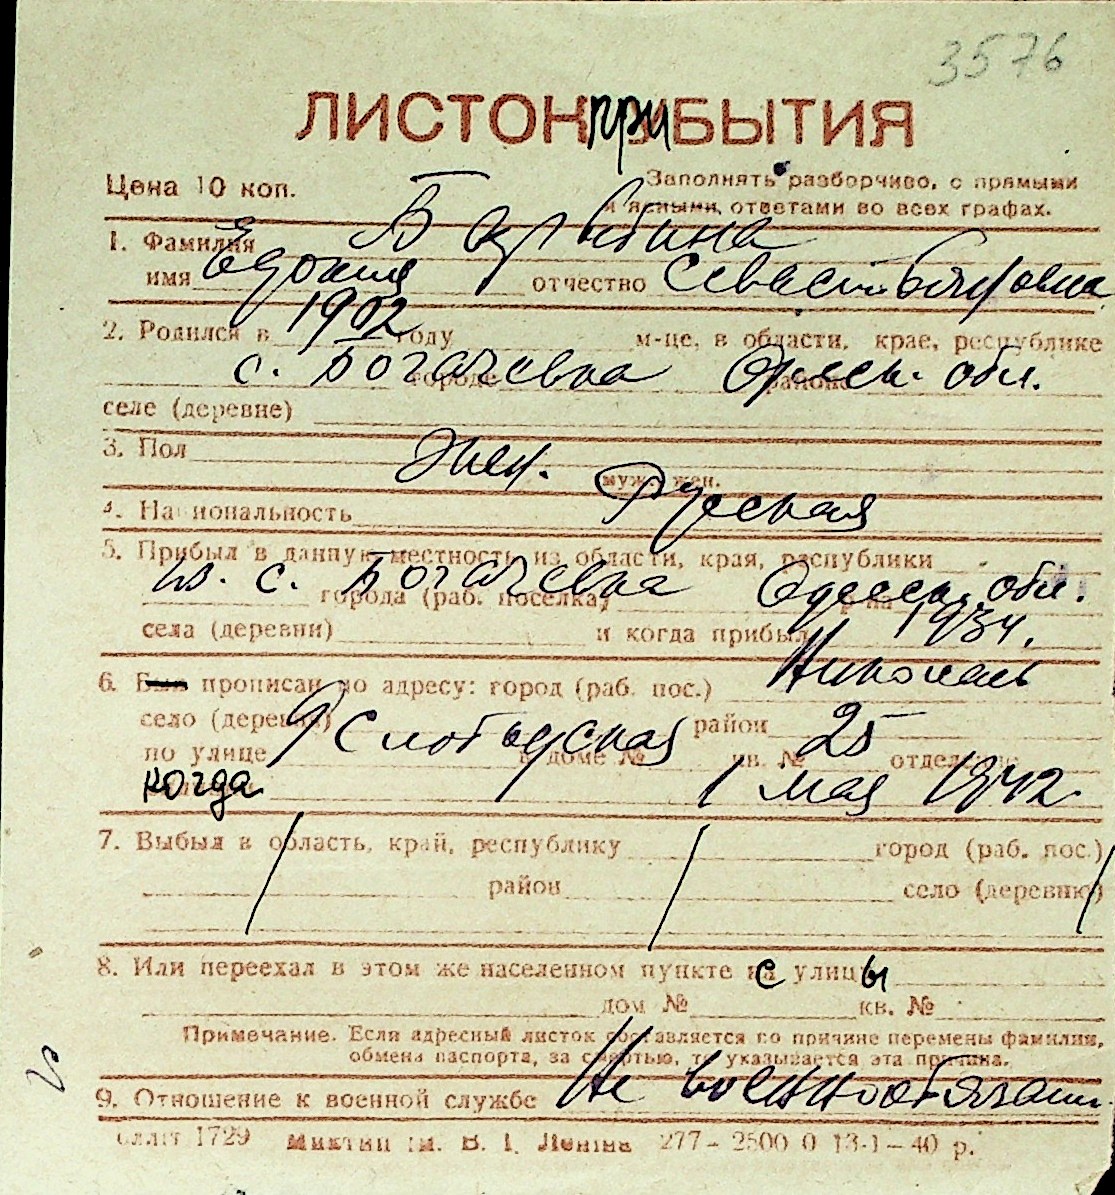 3576
ЛИСТОК ПРИБЫТИЯ
Цена 10 коп.
Заполнять разборчиво, с прямыми
и ясными, ответами во всех графах.
1. Фамилия
имя отчество Севастьяновна
2. Родился в 1902 году м-це, в области, крае, республике
с. Богачевка Одесск. обл.
городе районе
селе (деревне)
3. Пол Жен. муж., жен.
4. Национальность Русская
5. Прибыл в данную местность из области, края, республики
из. с. Богачевка Одесск. обл.
города (раб. поселка) р-на
села (деревни) и когда прибыл 1934.
6. Был прописан по адресу: город (раб. пос.) Николаев
село (деревня) район
по улице Слободская в доме № кв. № 25 отделение
когда 1 мая 1942
7. Выбыл в область, край, республику город (раб. пос.)
район село (деревню)
8. Или переехал в этом же населенном пункте с улицы
дом № кв. №
Примечание. Если адресный листок составляется по причине перемены фамилии,
обмена паспорта, за смертью, то указывается эта причина.
9. Отношение к военной службе Не военнообязан.
1729 В. І. Леніна 277-2500 0 13-1-40 р.